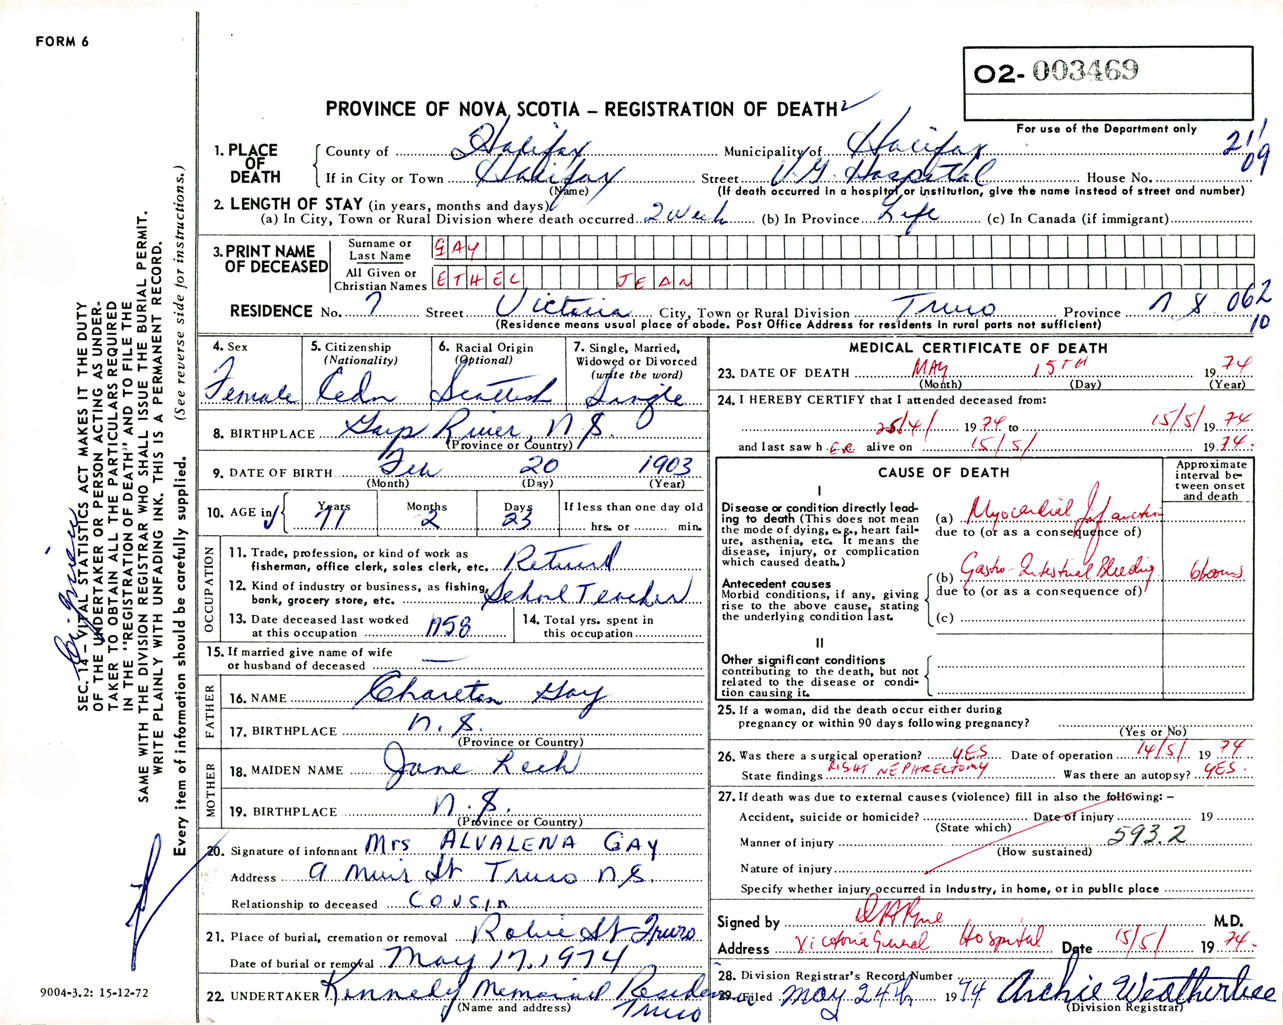 FORM 6
O2-003469
PROVINCE OF NOVA SCOTIA – REGISTRATION OF DEATH
For use of the Department only
21/09
1. PLACE OF DEATH
County of Halifax Municipality of Halifax
If in City or Town Halifax Street V.G. Hospital House No.
(Name) (If death occurred in a hospital or institution, give the name instead of street and number)
2. LENGTH OF STAY (in years, months and days)
(a) In City, Town or Rural Division where death occurred 2 Week (b) In Province Life (c) In Canada (if immigrant)
3. PRINT NAME OF DECEASED
Surname or Last Name GAY
All Given or Christian Names ETHEL JEAN
RESIDENCE No. 7 Street Victoria City, Town or Rural Division Truro Province N S 062
(Residence means usual place of abode. Post Office Address for residents in rural parts not sufficient) 10
4. Sex Female
5. Citizenship (Nationality) Cedn
6. Racial Origin (Optional) Scottish
7. Single, Married, Widowed or Divorced (write the word) Single
8. BIRTHPLACE River, N.S.
(Province or Country)
9. DATE OF BIRTH Feb 20 1903
(Month) (Day) (Year)
10. AGE in Years 71 Months 2 Days 23 If less than one day old hrs. or min.
OCCUPATION
11. Trade, profession, or kind of work as fisherman, office clerk, sales clerk, etc. Retired
12. Kind of industry or business, as fishing, bank, grocery store, etc. School Teacher
13. Date deceased last worked at this occupation 1958
14. Total yrs. spent in this occupation
15. If married give name of wife or husband of deceased —
FATHER
16. NAME Charlton Gay
17. BIRTHPLACE N.S.
(Province or Country)
MOTHER
18. MAIDEN NAME Jane
19. BIRTHPLACE N.S.
(Province or Country)
20. Signature of informant Mrs ALVALENA GAY
Address 9 Muir St Truro N.S.
Relationship to deceased COUSIN
21. Place of burial, cremation or removal Robie St Truro
Date of burial or removal May 17, 1974
22. UNDERTAKER Kennedy Memorial Residence
(Name and address) Truro
MEDICAL CERTIFICATE OF DEATH
23. DATE OF DEATH MAY 15TH 1974
(Month) (Day) (Year)
24. I HEREBY CERTIFY that I attended deceased from:
25/4/ 1974 to 15/5/ 1974
and last saw her alive on 15/5/ 1974.
CAUSE OF DEATH
Approximate interval between onset and death
I
Disease or condition directly leading to death (This does not mean the mode of dying, e.g., heart failure, asthenia, etc. It means the disease, injury, or complication which caused death.)
(a) Myocardial Infarction
due to (or as a consequence of)
Antecedent causes
Morbid conditions, if any, giving rise to the above cause, stating the underlying condition last.
(b) Gastro-Intestinal Bleeding 6 hours
due to (or as a consequence of)
(c)
II
Other significant conditions contributing to the death, but not related to the disease or condition causing it.
25. If a woman, did the death occur either during pregnancy or within 90 days following pregnancy?
(Yes or No)
26. Was there a surgical operation? YES Date of operation 14/5/ 1974
State findings RIGHT NEPHRECTOMY Was there an autopsy? YES.
27. If death was due to external causes (violence) fill in also the following: –
Accident, suicide or homicide? Date of injury 19
(State which)
Manner of injury 593.2
(How sustained)
Nature of injury
Specify whether injury occurred in Industry, in home, or in public place
Signed by M.D.
Address Victoria General Hospital Date 15/5/ 1974.
28. Division Registrar's Record Number
29. Filed May 24th 1974 Archie Weatherbee
(Division Registrar)
SEC. 14 – VITAL STATISTICS ACT MAKES IT THE DUTY
OF THE UNDERTAKER OR PERSON ACTING AS UNDER-
TAKER TO OBTAIN ALL THE PARTICULARS REQUIRED
IN THE "REGISTRATION OF DEATH" AND TO FILE THE
SAME WITH THE DIVISION REGISTRAR WHO SHALL ISSUE THE BURIAL PERMIT.
WRITE PLAINLY WITH UNFADING INK. THIS IS A PERMANENT RECORD.
Every item of information should be carefully supplied. (See reverse side for instructions.)
9004-3.2: 15-12-72